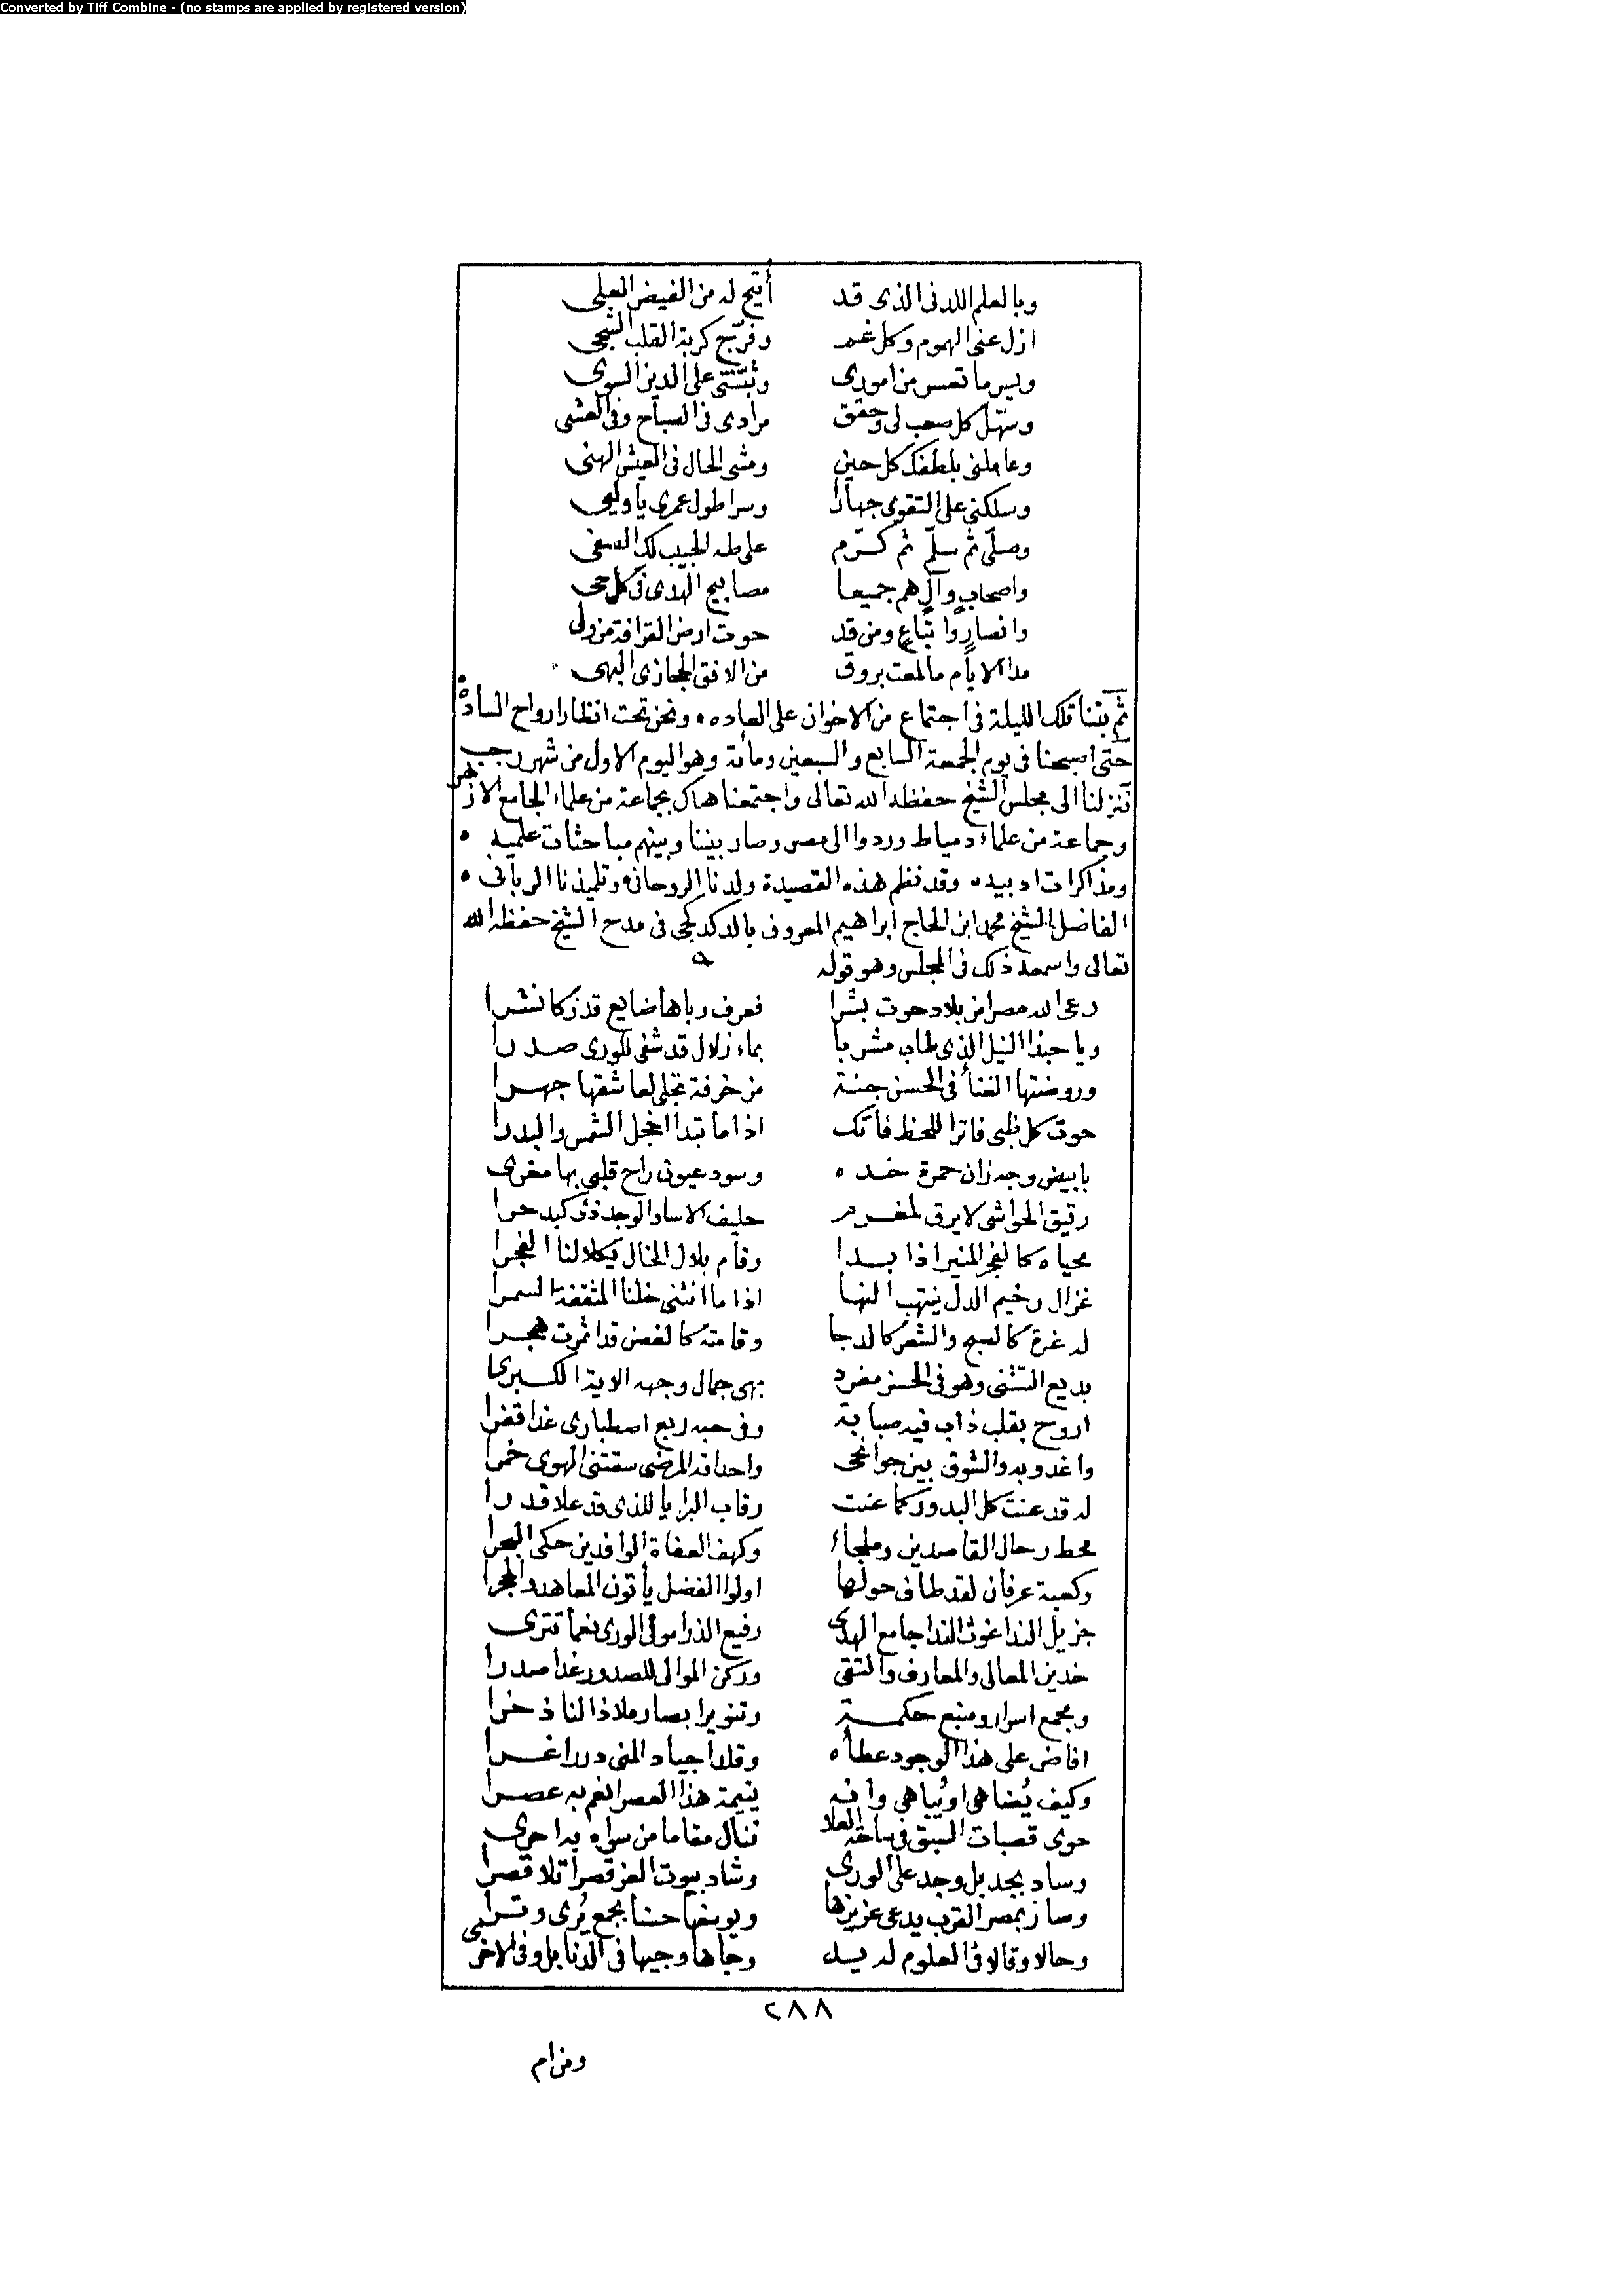 Converted by Tiff Combine - (no stamps are applied by registered version)
وبالعلم اللدنى الذى قد أتيح له من الفيض العلى
ازل عنى الهموم وكل غم وفرّج كربة القلب الشجى
ويسر ما تعسر من امورى وثبّتنى على الدين السوى
وسهّل كل صعب لى وحقق مرادى فى الصباح وفى العشى
وعاملنى بلطفك كل حين ومشى الحال فى العيش الهنى
وسلكنى على التقوى جهارا وسرا طول عمرى يا وليى
وصلّى ثم سلّم ثم كرّم على طه الحبيب لك الصفى
واصحاب وآل هم جميعا مصابيح الهدى فى كل حى
وانصار واتباع ومن قد حوت ارض القرافة من ولى
مدا الايام ما لمعت بروق من الافق الحجازى البهى
ثم بتنا تلك الليلة فى اجتماع من الاخوان على العاده ونحن تحت انظار ارواح السادة
حتى اصبحنا فى يوم الجمعة السابع والسبعين ومائة وهو اليوم الاول من شهر رجب
فنزلنا الى مجلس الشيخ حفظه الله تعالى واجتمعنا هناك بجماعة من علماء الجامع الازهر
وجماعة من علماء دمياط وردوا الى مصر وصار بيننا وبينهم مباحثات علميه
ومذاكرات ادبيه وقد نظم هذه القصيدة ولدنا الروحانى وتلميذنا الربانى
الفاضل الشيخ محمد ابن الحاج ابراهيم المعروف بالدكدكجى فى مدح الشيخ حفظه الله
تعالى واسمعه ذلك فى المجلس وهو قوله
رعى الله مصرا من بلاد حوت بشرا فعرف رباها ضايع قد زكا نشرا
ويا حبذا النيل الذى طاب مشربا بماء زلال قد شفى للورى صدرا
وروضتها الغنأ فى الحسن جنة مزخرفة تجلى لعاشقها جهرا
حوت كل ظبى فاتر اللحظ فاتك اذا ما تبدا اخجل الشمس والبدرا
بابيض وجه زان حمرة خده وسود عيون راح قلبى بها مغرى
رقيق الحواشى لا يرق لمغرم حليف الاسا والوجد ذى كبد حرا
محياه كالفجر المنير اذا بدا وقام بلال الخال يكلا لنا الفجرا
غزال رخيم الدل ينتهب النها اذا ما انثنى خلنا المثقفة السمرا
له غرة كالصبح والشعر كالدجا وقامته كالغصن قد اثمرت هجرا
بديع التثنى وهو فى الحسن مفرد بهى جمال وجهه الاية الكبرى
اروح بقلب ذاب فيه صبابة وفى حبه ربع اصطبارى غدا قفرا
واغدو به والشوق بين جوانحى واحداقه المرضى سقتنى الهوى خمرا
له قد عنت كل البدور كما عنت رقاب البرايا للذى قد علا قدرا
محط رحال القاصدين وملجاء وكهف العفاة الوافدين حكى البحرا
وكعبة عرفان لقد طاف حولها اولوا الفضل يأتون المعاهد والحجرا
جزيل الندا غوث الندا جامع الهدى رفيع الذرا مولى الورى نعما تترى
خدين المعالى والمعارف والتقى وركن الموالى للصدور غدا صدرا
ومجمع اسرار ومنبع حكمة وتنوير ابصار ملاذا لنا ذخرا
افاض على هذا الوجود عطاه وقلد اجياد المنى دررا غرا
وكيف يُضاهى او يُباهى وانه يتيمة هذا العصر انعم به عصرا
حوى قصبات السبق فى ساحة العلا فنال مقاما من سواه به احرى
وساد بجد بل وجد على الورى وشاد بيوت العز قصرا تلا قصرا
وساز بمصر القرب يدعى عزيزها ويوسفها حسنا بجمع يُرى وترا
وحالا وقالا فى العلوم له يد وجاها وجيها فى الدنا بل وفى الاخرى
٢٨٨
ومن ام